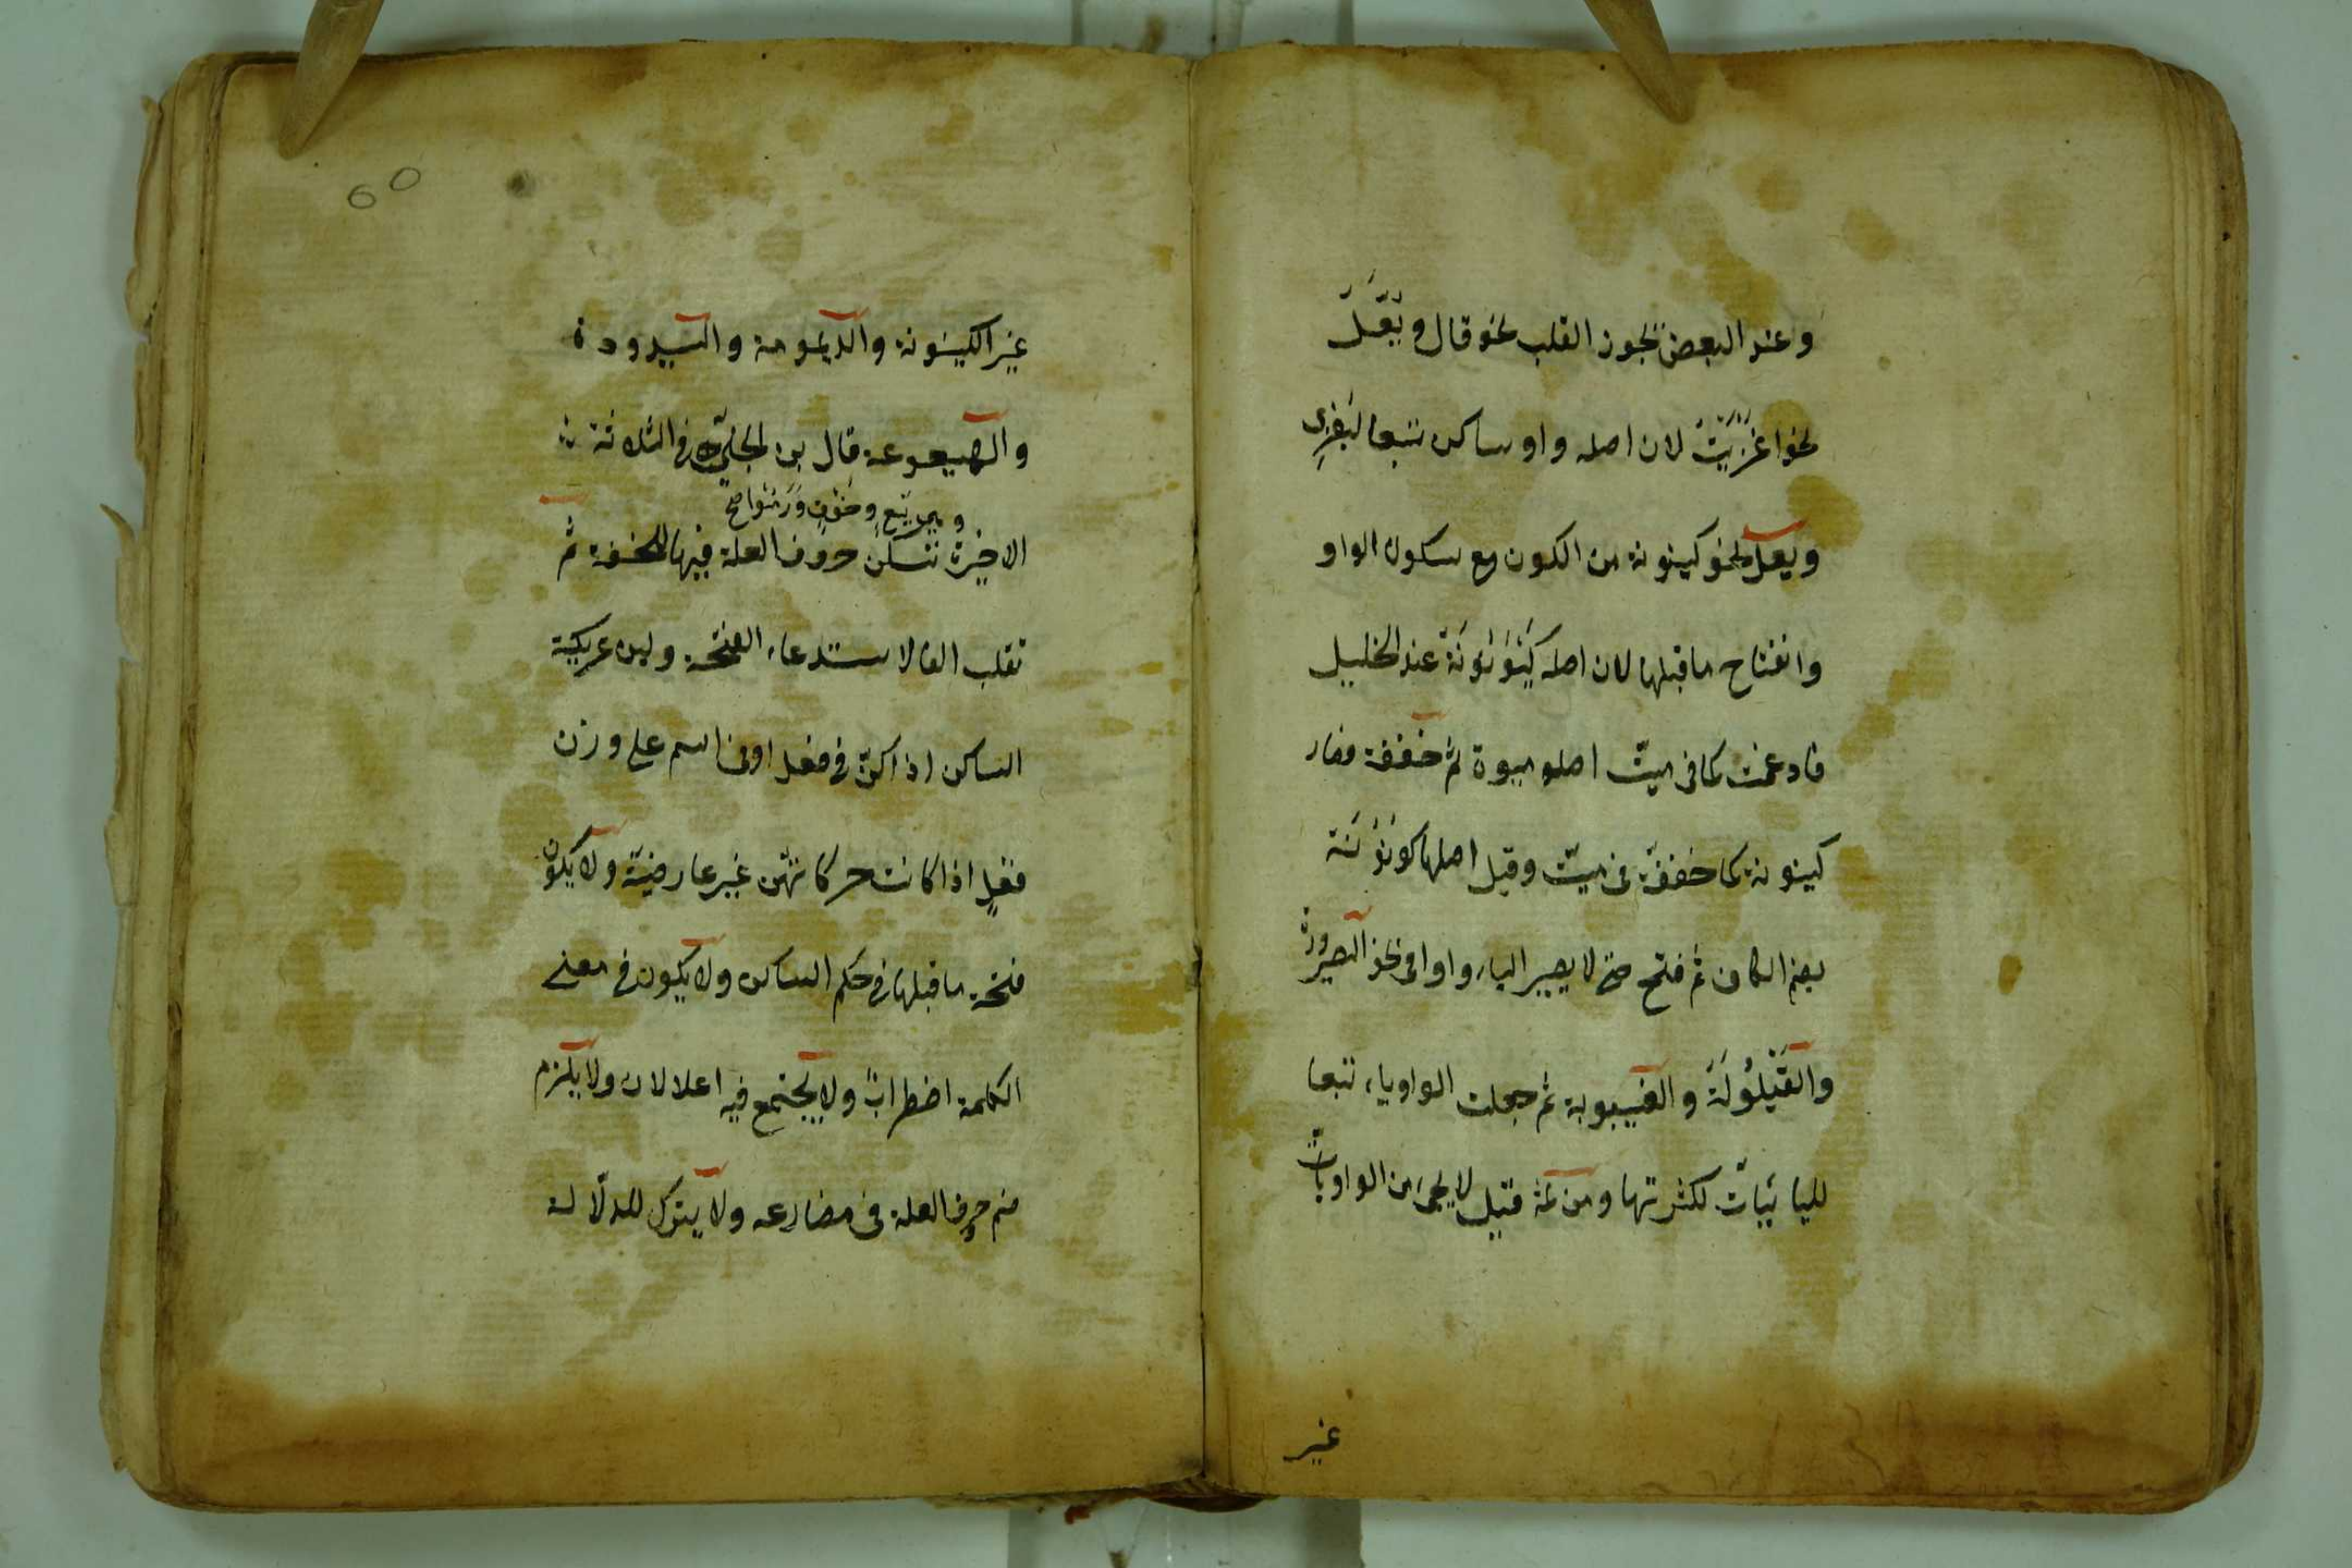 وعند البعض يجوز القلب نحو قال و يَقَلَ
نحو اغزيت لان اصله واو ساكن تتبعا ليغزى
ويعل نحو كينونة من الكون مع سكون الواو
وانفتاح ما قبلها لان اصله كَيْوَنُونَة عند الخليل
فادغمت كما فى ميّت اصله ميوة ثم خففة فصار
كينونة كما خففة فى ميّت وقيل اصلها كُونُونَة
بضم الكاف ثم فتح حتى لا يصير الياء واوا فى نحو الصيرورة
والقَيْلُولَة و الغيبوبة ثم جعلت الواو ياء تتبعا
لليائيات لكثرتها ومن ثمة قيل لا يجئ من الواويات
غير
٦٥
غير الكينونة والديمومة والسيدودة
والهيعوعة قال بن الجنى فى الثلاثة
و هى بَيَع و خَوَف و رَمَيُوا صح
الاخيرة تسكن حروف العلة فيها للخفة ثم
تقلب الفا لاستدعاء الفتحة ولين عريكة
الساكن اذا كن فى فعل او فى اسم على وزن
فعل اذا كانت حركاتهن غير عارضية ولا يكون
فتحة ما قبلها فى حكم الساكن ولا يكون فى معنى
الكلمة اضطراب ولا يجتمع فيه اعلالان ولا يلزم
ضم حروف العلة فى مضارعه ولا يترك للدلالة